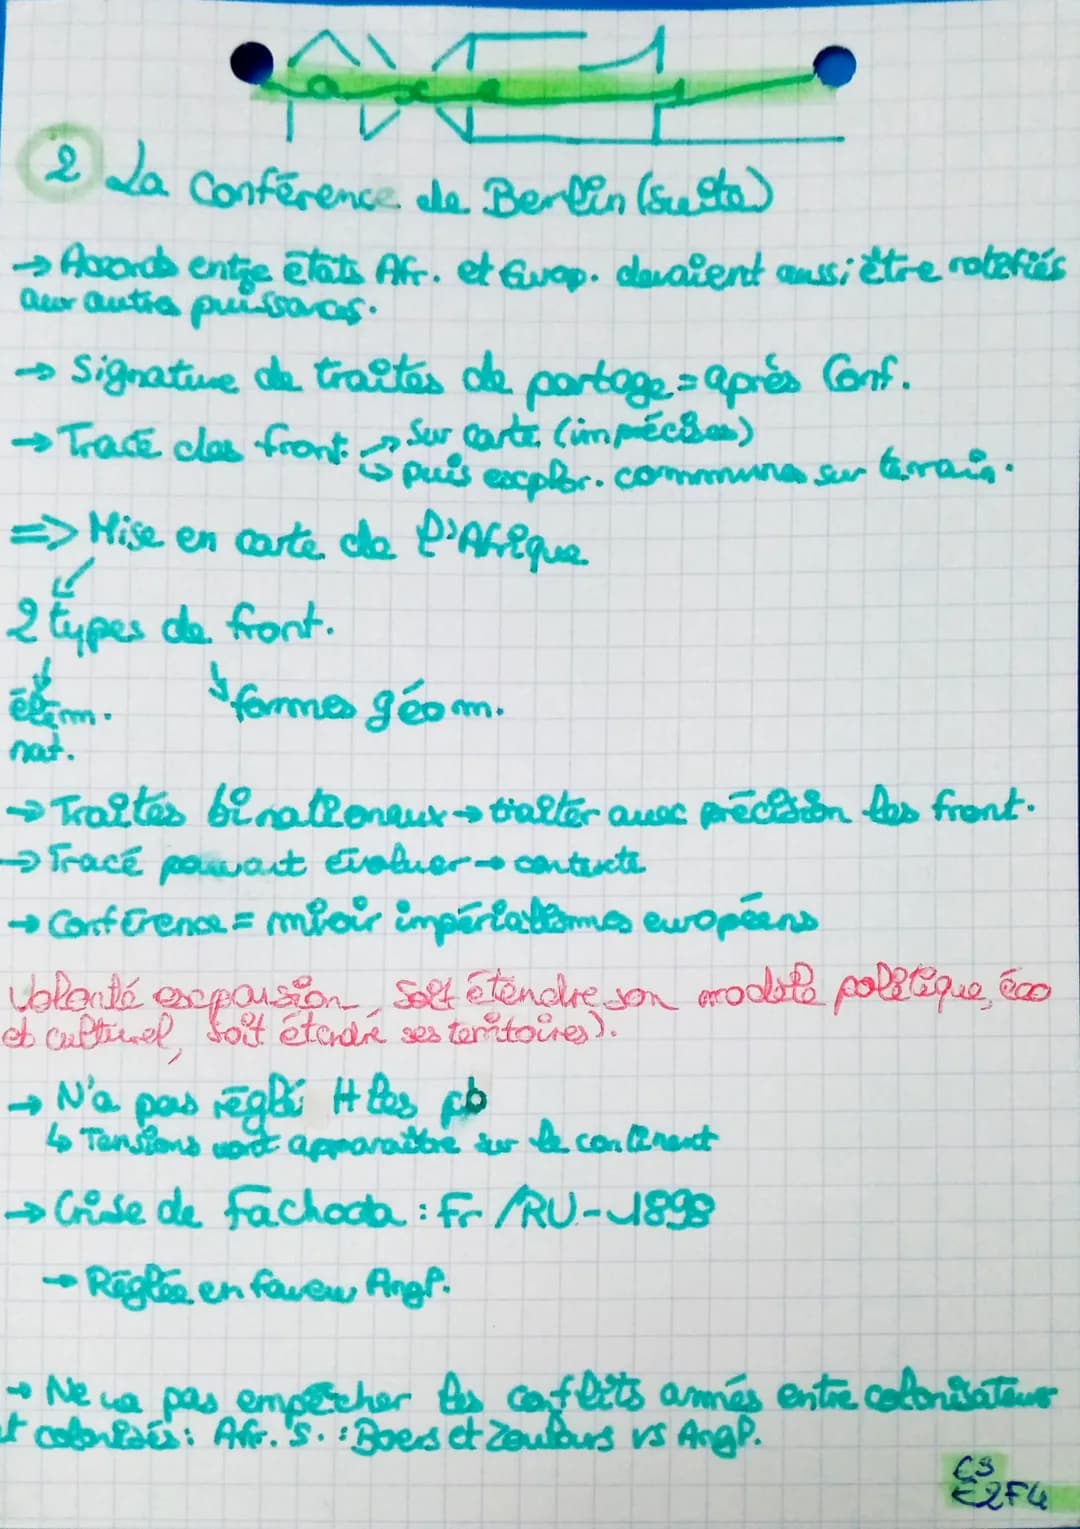 axe 1
2 La Conférence de Berlin (suite)
→ Accords entre états Afr. et Europ. devaient aussi être notifiés
aux autres puissances.
→ Signature de traités de partage = après Conf.
→ Tracé des front. → sur carte (imprécises)
↳ puis explor. communes sur terrain.
=> Mise en carte de l'Afrique
2 types de front.
élém. formes géom.
nat.
→ Traités binationaux → traiter avec précision les front.
→ Tracé pouvait évoluer → contexte
→ Conférence = miroir impérialismes européens
Volonté expansion, soit étendre son modèle politique, éco
et culturel, soit étendre ses territoires).
→ N'a pas réglé tt les pb
↳ Tensions vont apparaître sur le continent
→ Crise de Fachoda : Fr /RU - 1898
→ Réglée en faveur Angl.
→ Ne va pas empêcher les conflits armés entre colonisateurs
et colonisés : Afr. S. : Boers et Zoulous vs Angl.
C3
E2F4